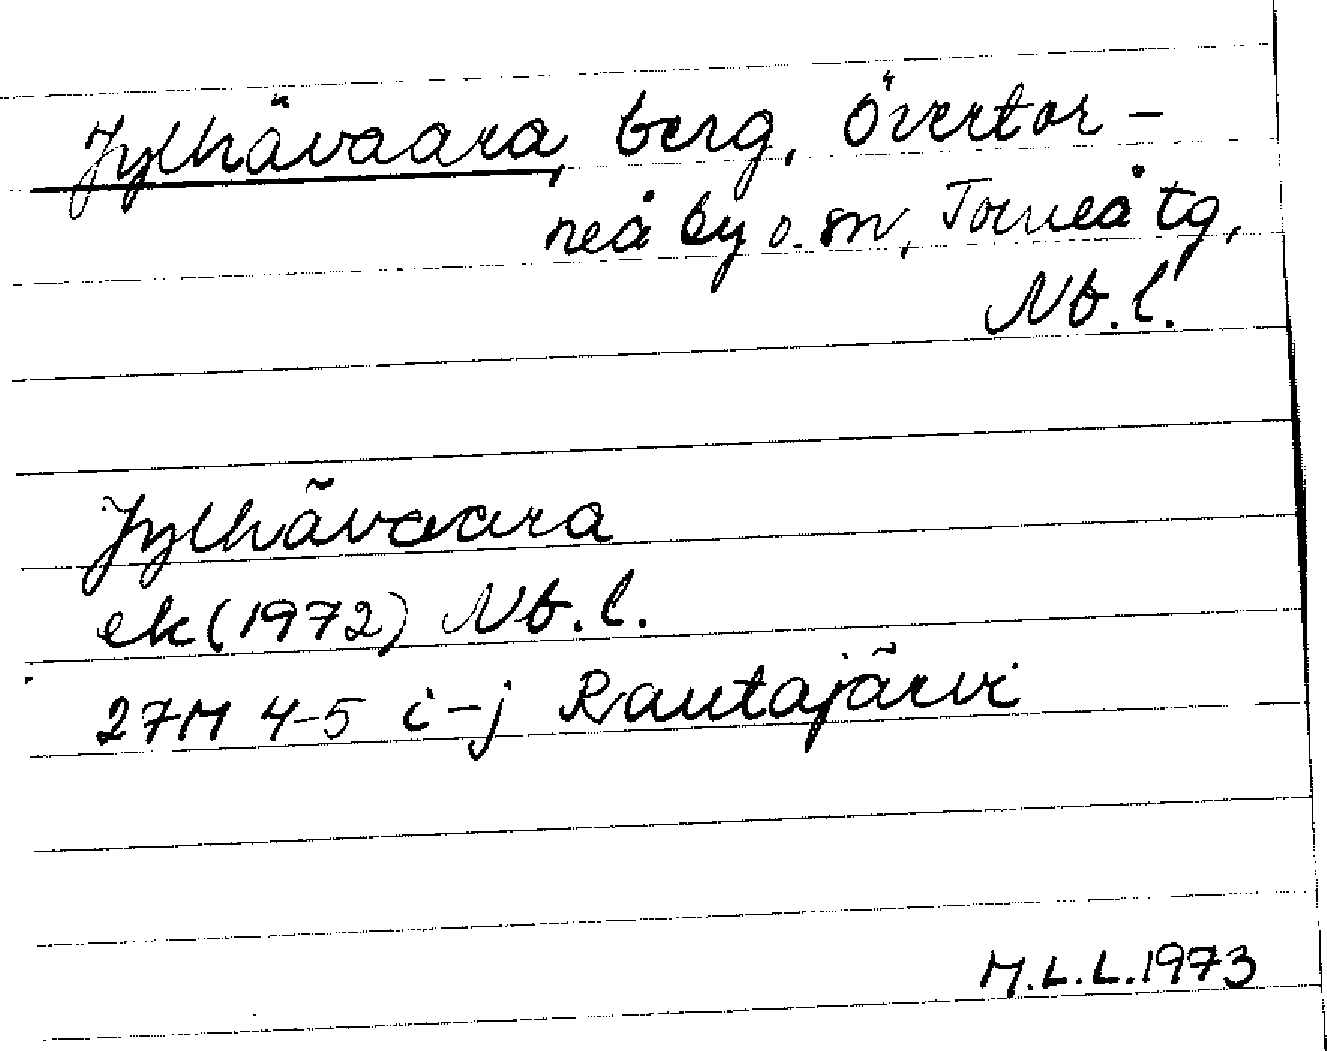 Jylhävaara, berg, Övertor-
neå by o. sn, Torneå tg,
Nb.l.
Jylhävaara
ek (1972) Nb.l.
27M 4-5 i-j Rautajärvi
M.L.L.1973